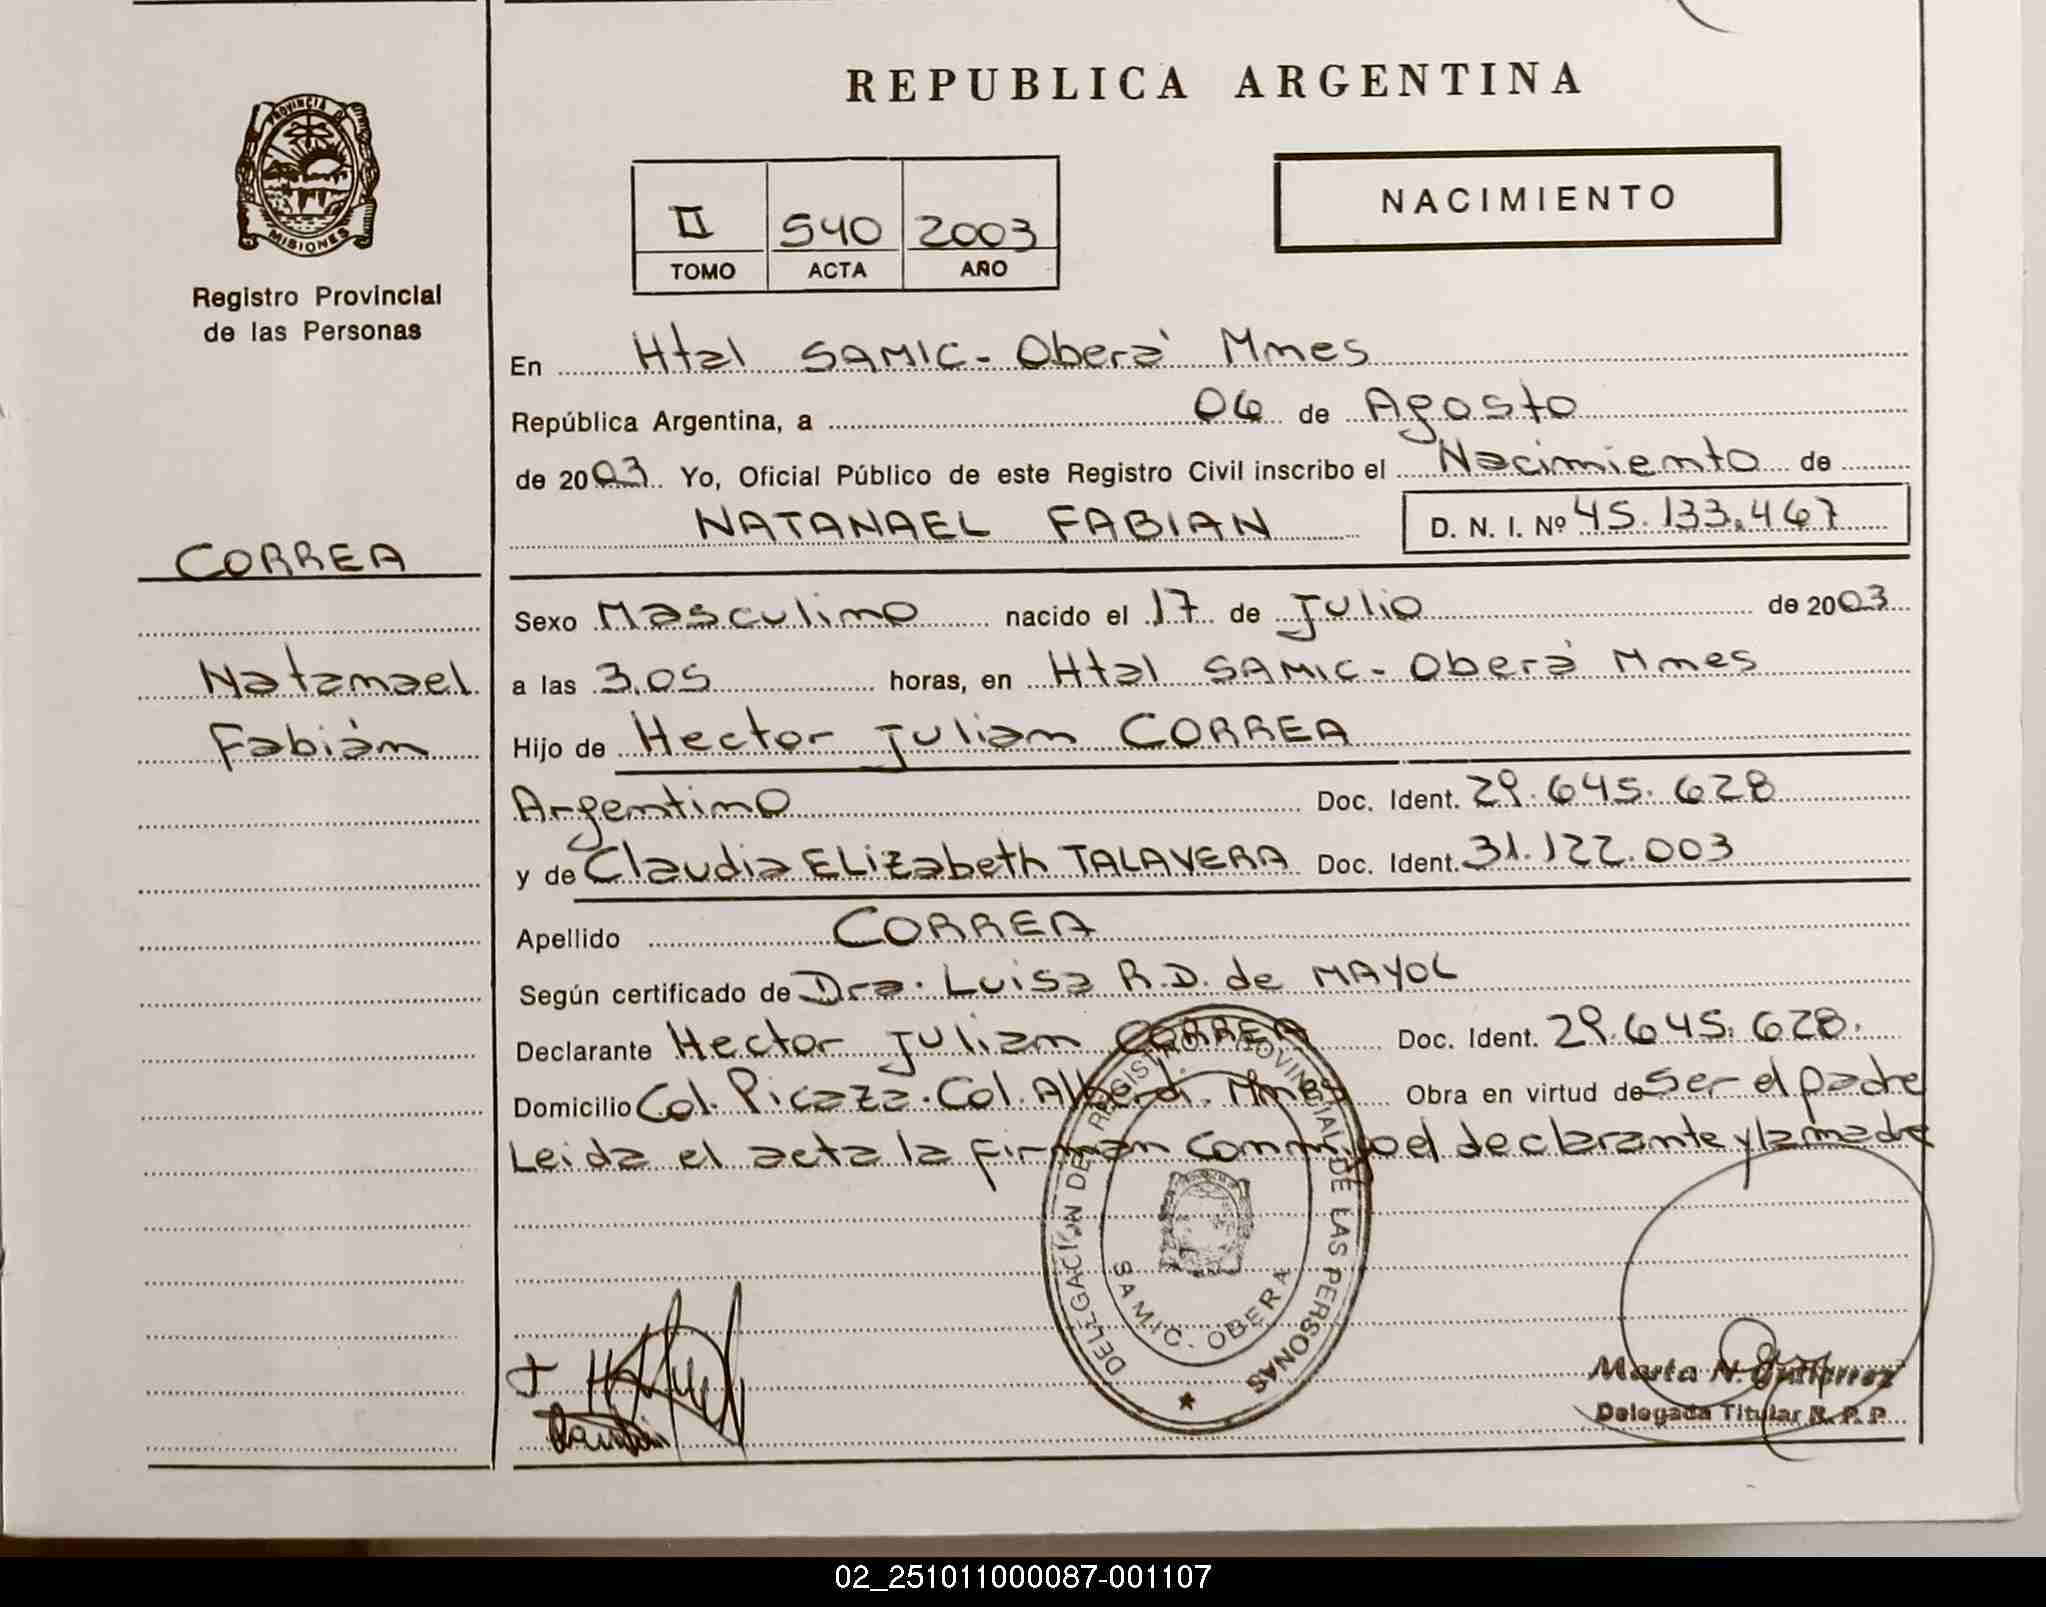 REPUBLICA ARGENTINA
PROVINCIA DE
MISIONES
Registro Provincial
de las Personas
NACIMIENTO
II 540 2003
TOMO ACTA AÑO
En Htal SAMIC - Oberá Mnes
República Argentina, a 06 de Agosto
de 2003. Yo, Oficial Público de este Registro Civil inscribo el Nacimiento de
NATANAEL FABIAN D. N. I. Nº 45.133.467
CORREA
Natanael
Fabián
Sexo Masculino nacido el 17 de Julio de 2003
a las 3.05 horas, en Htal SAMIC - Oberá Mnes
Hijo de Hector Julian CORREA
Argentino Doc. Ident. 29.645.628
y de Claudia ELizabeth TALAVERA Doc. Ident. 31.122.003
Apellido CORREA
Según certificado de Dra. Luisa R.D. de MAYOL
Declarante Hector Julian CORREA Doc. Ident. 29.645.628.
Domicilio Col. Picaza. Col. Alberdi. Mnes Obra en virtud de Ser el padre
Leida el acta la firman conmigo el declarante y la madre
DELEGACION DEL REGISTRO PROVINCIAL DE LAS PERSONAS
SAMIC - OBERA
Marta N. Gutierrez
Delegada Titular R. P. P.
02_251011000087-001107